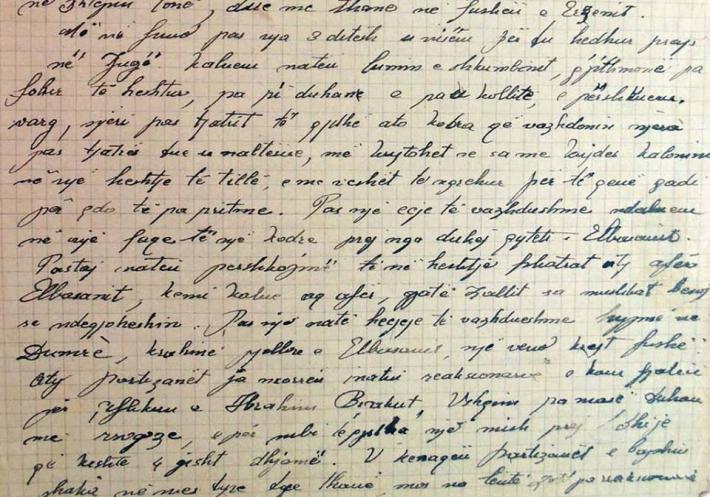 në Shtepin tonë, dhe me thane në fushën e Erzenit.
Atë në fund pas nja 3 ditesh u nisëm për tu hedhur prej
në Zugë kaluem naten lumin e Shkumbinit, gjithmonë pa
folur të heshtur, pa pi duhane e pa u kollitë, e
varg, njeri pas tjetrit të gjdhë ato kodra që vazhdonin njëra
pas tjetrës tue u naltësue, më kujtohet se sa me kujdes kalonim
në një heshtje të tillë, e me veshët te ngrehur per të qenë gadi
për çdo të pa pritme. Pas një ecje të vazhdushme ndaluem
në një faqe të një kodre prej nga dukej qyteti i Elbasanit.
Pastaj naten në heshtje fshatrat aty afër
Elbasanit, kemi kalue aq afër, gjatë zallit sa muhabet
se ndegjoheshin. Pas një natë hecjeje të vazhdueshme hyjme në
Dumrè, krahinë pjellore e Elbasanit, një vend krejt fushë
Aty partizanët ja morrën inatin reaksionarve e kam fjalën
për çiflikun e Ibrahim Biçakut. pa masë duhan
me rrogoze, e për mbi një mish prej
që kishte 4 gisht dhjamë. U kenaqën partizanët e
shaka në mes tyre tue thanë, mos na